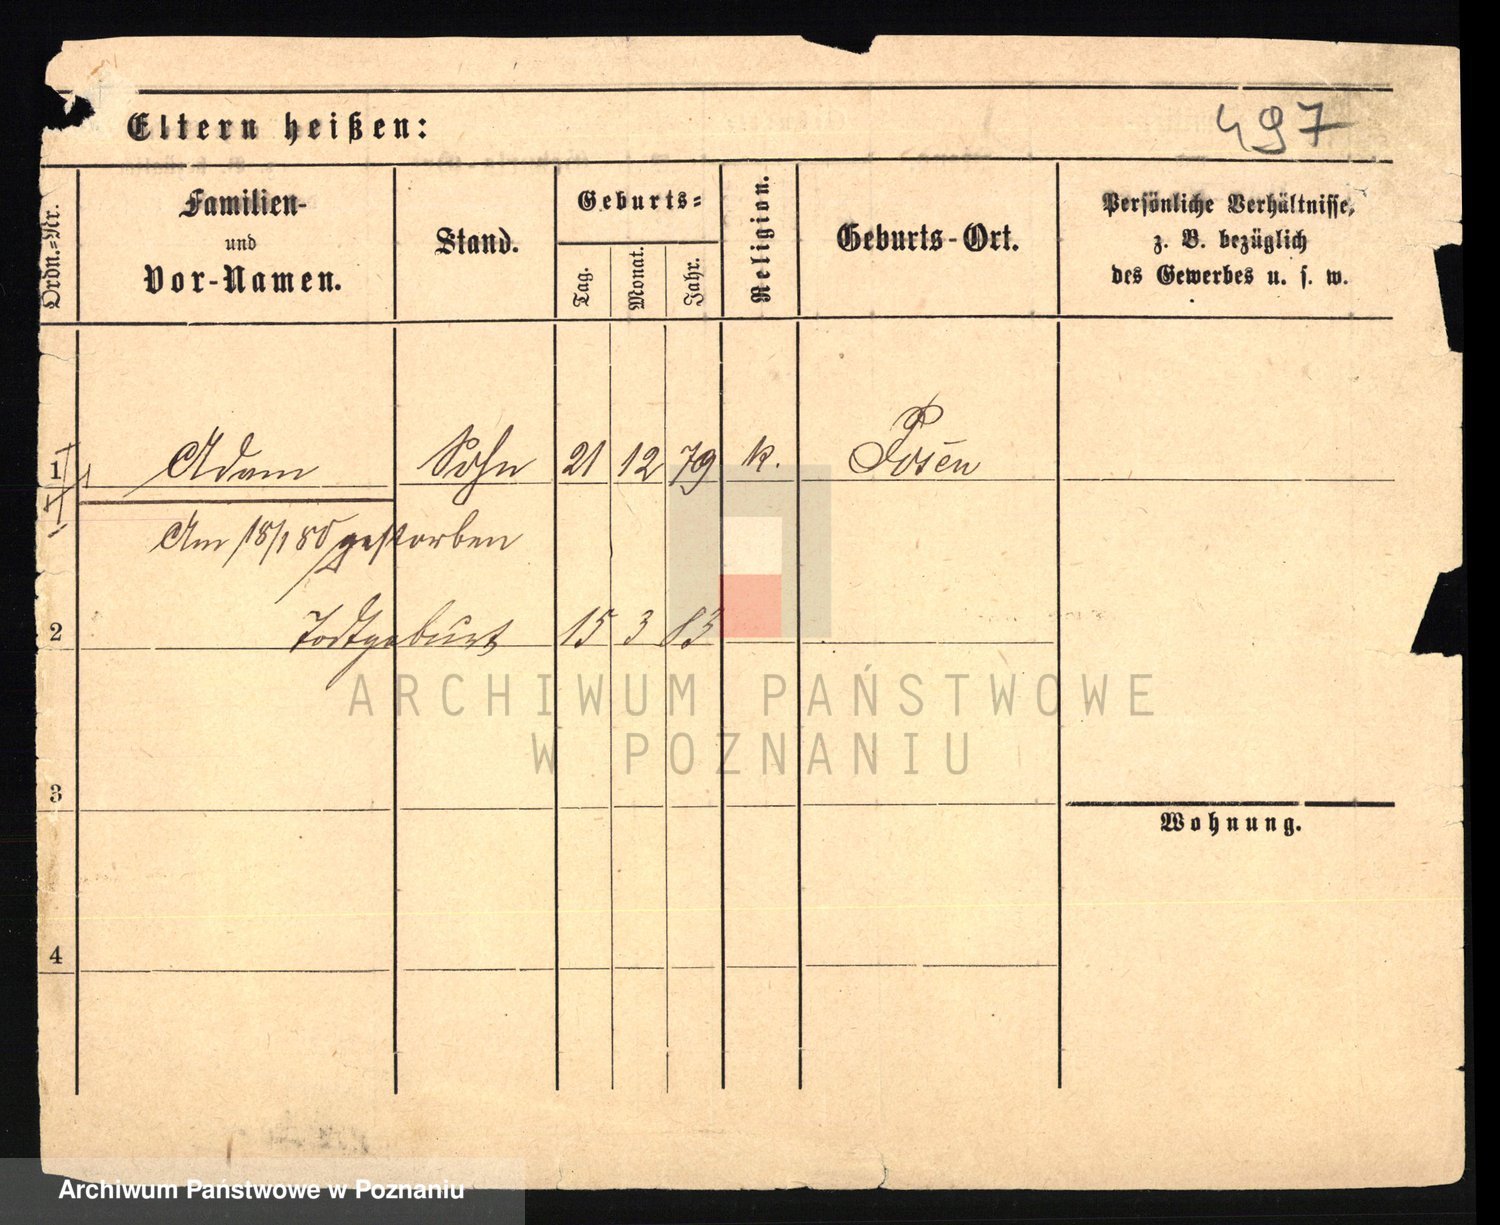 497
Eltern heißen:
Ordn.=Nr.
Familien-
und
Vor-Namen.
Stand.
Geburts=
Tag.
Monat.
Jahr.
Religion.
Geburts-Ort.
Persönliche Verhältnisse,
z. B. bezüglich
des Gewerbes u. s. w.
1 Adam Sohn 21 12 79 k. Posen
Am 18/1 80 gestorben
2 Todtgeburt 15 3 83
ARCHIWUM PAŃSTWOWE
W POZNANIU
3
Wohnung.
4
Archiwum Państwowe w Poznaniu